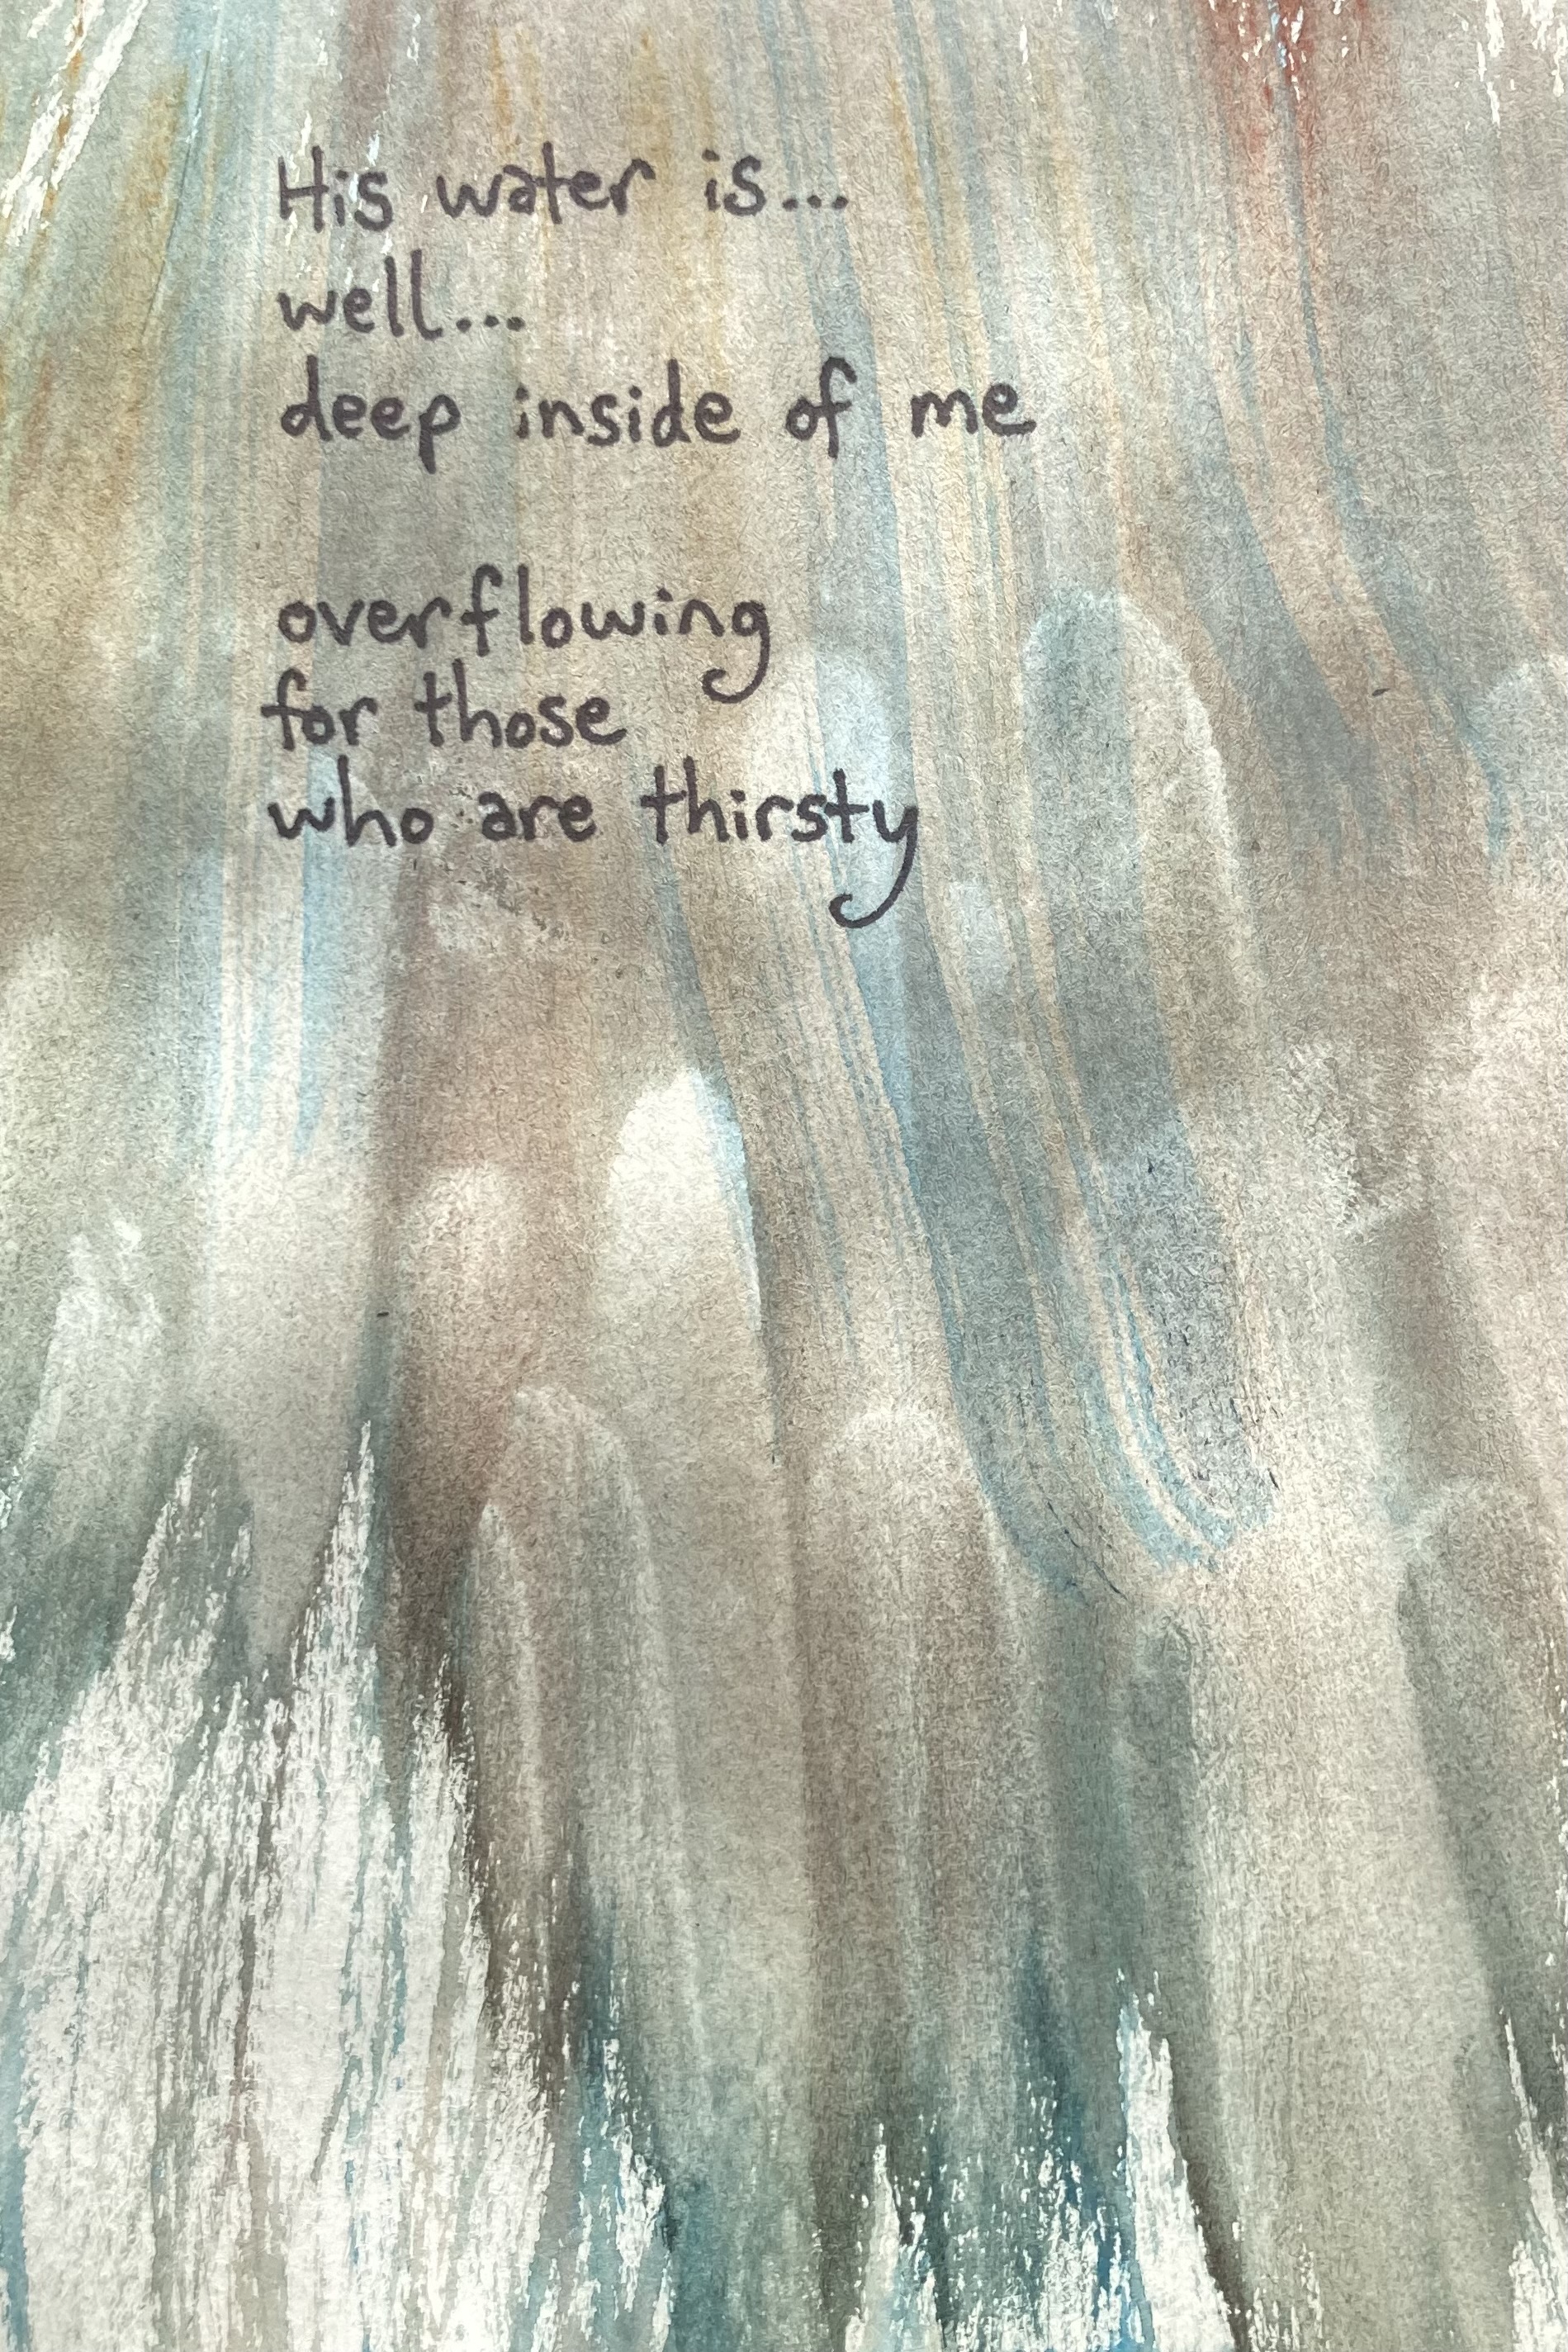 His water is...
well...
deep inside of me
overflowing
for those
who are thirsty